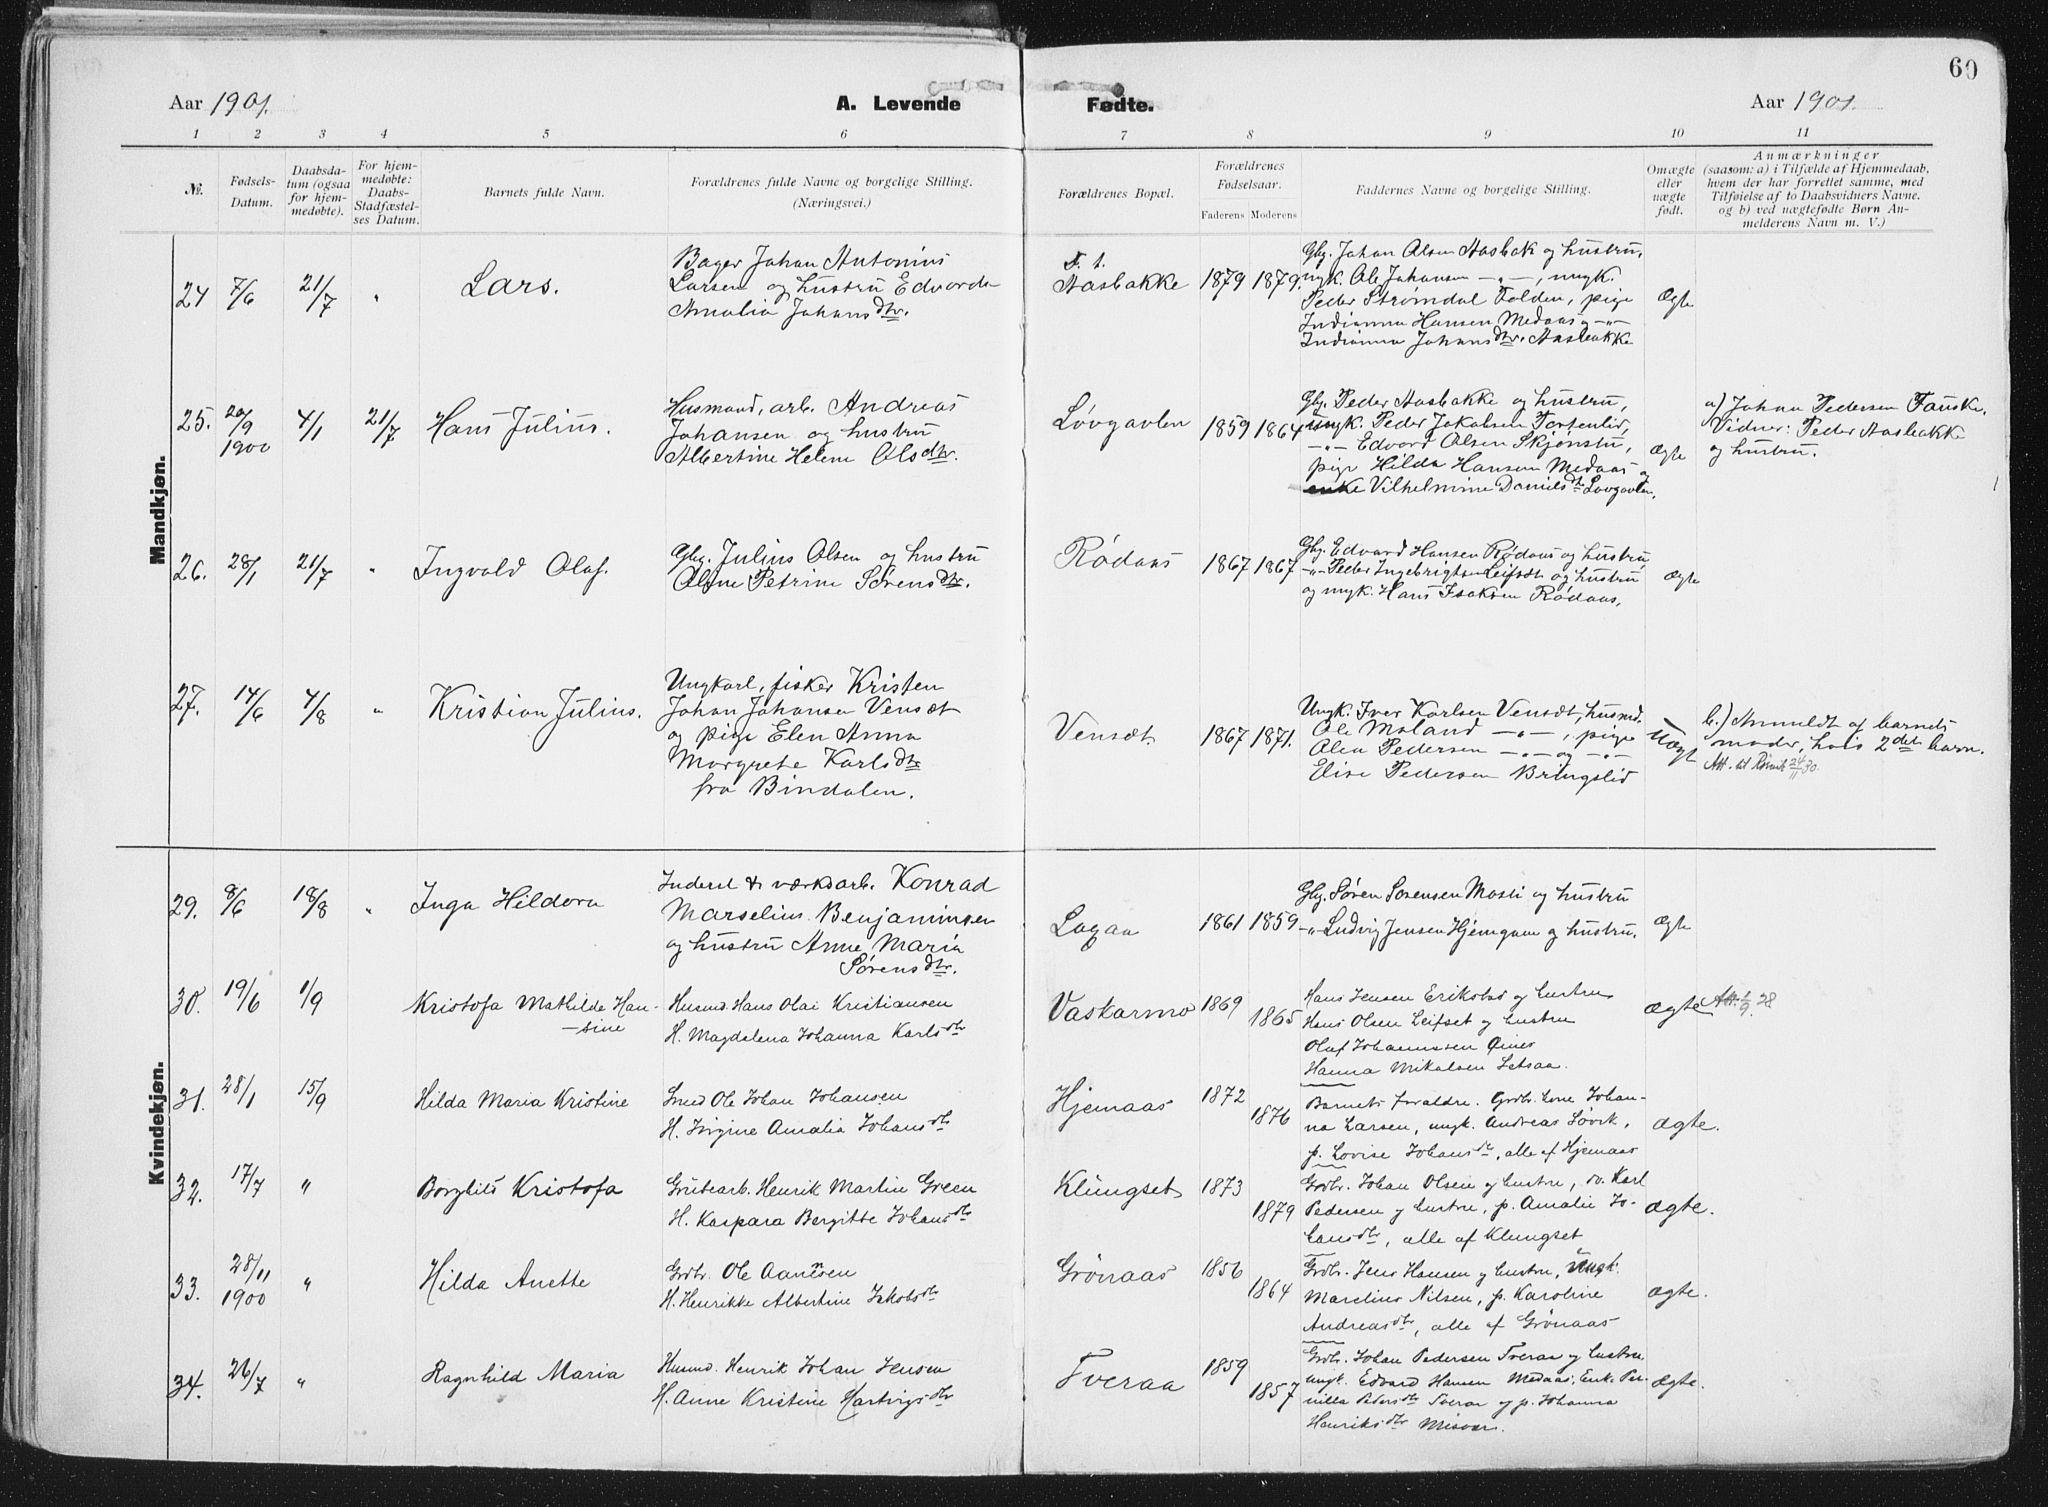 60
Aar 1901.
A. Levende
Fødte.
Aar 1901.
1 2 3 4 5 6 7 8 9 10 11
№.
Fødsels-
Datum.
Daabsda-
tum (ogsaa
for hjem-
medøbte).
For hjem-
medøbte:
Daabs-
Stadfæstel-
ses Datum.
Barnets fulde Navn.
Forældrenes fulde Navne og borgelige Stilling.
(Næringsvei.)
Forældrenes Bopæl.
Forældrenes
Fødselsaar.
Faderens Moderens
Faddernes Navne og borgelige Stilling.
Omægte
eller
uægte
født.
Anmærkninger
(saasom: a) i Tilfælde af Hjemmedaab,
hvem der har forrettet samme, med
Tilføielse af to Daabsvidners Navne.
og b) ved uægtefødte Børn An-
melderens Navn m. V.)
Mandkjøn.
24 7/6 21/7 " Lars.
Bager Johan Antonius
Larsen og hustru Edvarda
Amalia Johansdtr.
F. t.
Aasbakke 1879 1879.
Gbg. Johan Olsen Aasbak og hustru,
ungk. Ole Johansen -"-, ungk.
Peder Strømdal Folden, pige
Indianna Hansen Medaas og -"-
Indianna Johansdtr. Aasbakke
Ægte
25. 20/9 1900 4/1 21/7 Hans Julius.
Husmand, arb. Andreas
Johansen og hustru
Albertine Helene Olsdtr.
Løvgavlen 1859 1864
Gbg. Peder Aasbakke og hustru,
Ungk. Peder Jakobsen Tortenlid,
-"- Edvard Olsen Skjønstu,
pige Hilda Hansen Medaas og
enke Vilhelmine Danielsdtr Løvgavlen.
Ægte
a) Johan Pedersen Fauske.
Vidner: Peder Aasbakke
og hustru.
26. 28/1 21/7 " Ingvald Olaf.
Gbg. Julius Olsen og hustru
Oline Petrine Sørensdtr.
Rødaas 1867 1867
Gbg. Edvard Hansen Rødaas og hustru,
-"- Peder Ingebrigtsen Leifset og hustru
og ungk. Hans Isaksen Rødaas.
Ægte
27. 14/6 4/8 " Kristian Julius.
Ungkarl, fisker Kristen
Johan Johansen Venset
og pige Elen Anna
Margrete Karlsdtr
fra Bindalen.
Venset. 1867 1871.
Ungk. Iver Karlsen Venset, husmd.
Ole Moland -"-, pige
Alea Pedersen -"- og -"-
Elise Pedersen Bringslid
Uægt
b.) Anmeldt af barnets
moder, hvis 2det barn.
Att. til 24/11 30.
Kvindekjøn.
29. 8/6 18/8 " Inga Hildora
Inderst & værksarb. Konrad
Marselius Benjaminsen
og hustru Anne Maria
Sørensdtr.
Lagaa 1861 1859
Gbg. Søren Sørensen Mosti og hustru
-"- Ludvig Jensen Hjemgam og hustru.
Ægte
30. 19/6 1/9 Kristofa Mathilde Han-
-sine
Husmd. Hans Olai Kristiansen
H. Magdalena Johanna Karlsdtr
Vaskarmo 1869
1865
Hans Jensen Erikstad og hustru
Hans Olsen Leifset og hustru
Olaf Johannessen Øines
Hanna Mikalsen Setsaa.
ægte
Att. 1/9. 28
31. 28/1 15/9 Hilda Maria Kristine
Smed Ole Johan Johansen
H. Jørgine Amalia Johansdtr
Hjemaas 1872
1876
Barnets Foraldre. Grdbr. Enke Johan-
na Larsen, ungk. Andreas Løvik,
p. Lovise Johansdtr, alle af Hjemaas
ægte.
32. 17/7 " Borghild Kristofa
Grubearb. Henrik Martin Green
H. Kaspara Bergitte Johansdtr
Klungset 1873
1879
Grdbr. Johan Olsen og hustru, do. Karl
Pedersen og hustru, p. Amalie Jo-
hansdtr, alle af Klungset
ægte.
33. 28/11 1900 " Hilda Anette
Grdbr. Ole Aanesen
H. Henrikke Albertine Jakobsdtr
Grønaas 1856
1864
Grdbr. Jens Hansen og hustru, Ungk.
Marelius Nilsen, p. Karoline
Andreasdtr, alle af Grønaas
ægte.
34. 26/7 " Ragnhild Maria
Husmd. Henrik Johan Jensen
H. Anne Kristine Hartvigsdtr
Tveraa 1859
1857
Grdbr. Johan Pedersen Tveraa og hustru,
ungk. Edvard Hansen Medaas, Enke Per-
nilla Pedersdtr Tveraa og p. Johanna
Henriksdtr Misvær.
ægte.